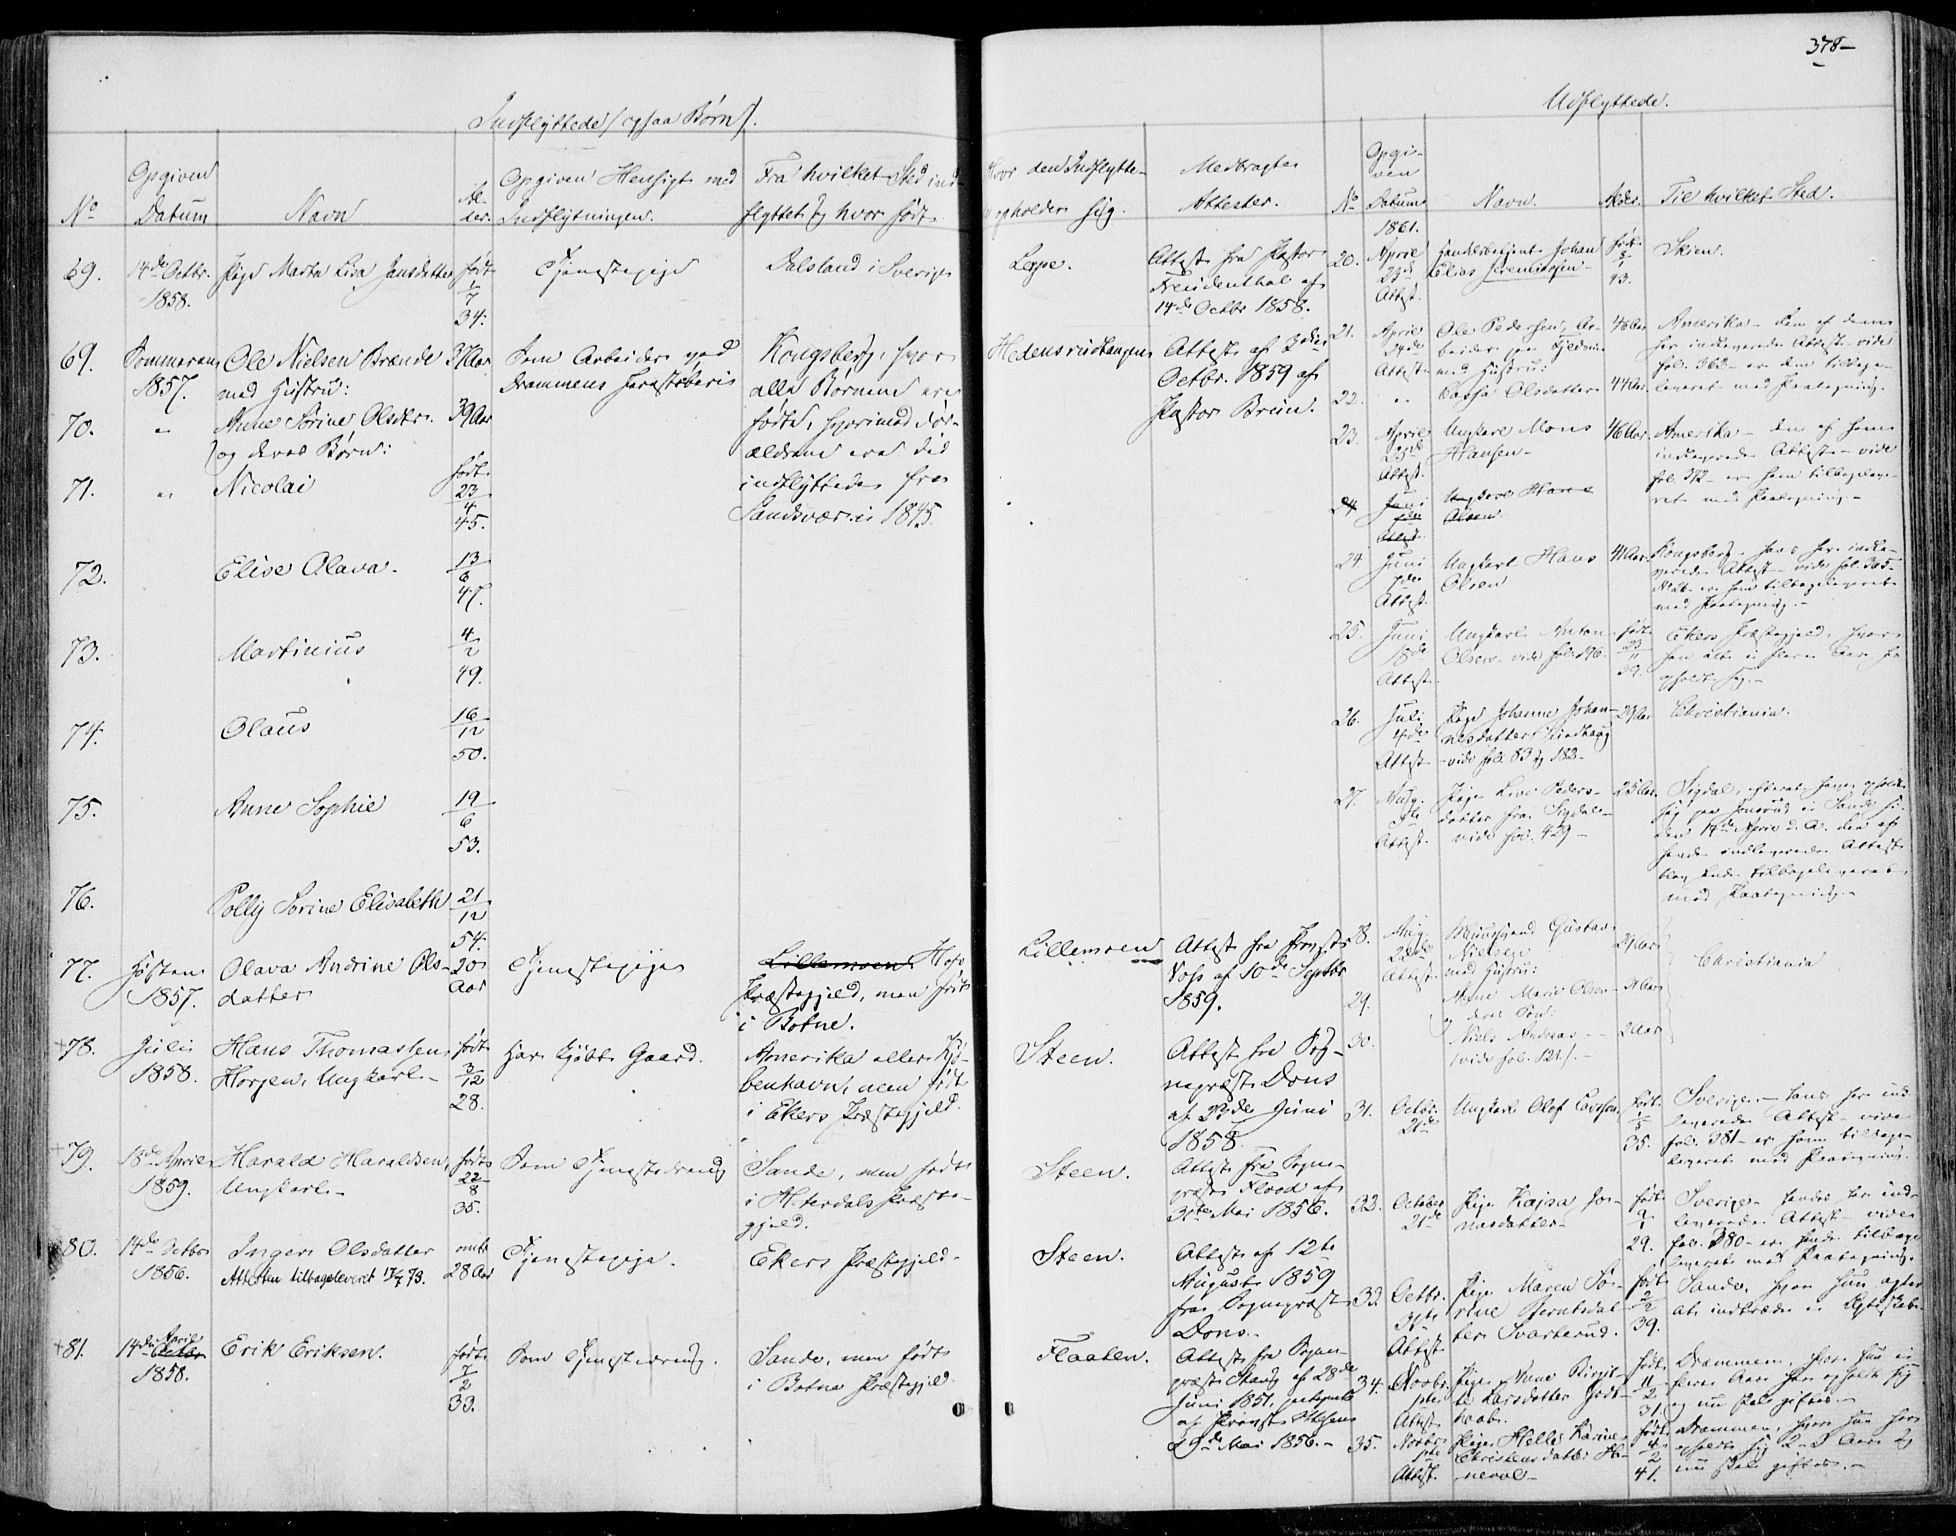 378-
Indflyttede (ogsaa Børn).
Udflyttede.
No
Opgiven
Datum
Navn
Al-
der.
Opgiven Hensigt med
Indflytningen.
Fra hvilket Sted ind-
flyttet og hvor født.
Hvor den Indflytte-
opholder sig.
Medbragte
Attester.
69.
14de Octbr.
1858.
Pige Marta Lisa Jansdatter
født
1
7
34.
Tjenestepige
Dalsland i Sverige
Lerpe.
Attest fra Pastor
Freudenthal af
14de Octbr 1858.
69.
Sommeren
1857.
Ole Nielsen Brænde
med Hustru:
37 Aar
Som Arbeider ved
Drammens
Kongsberg, hvor
alle Børnene ere
fødte, hvorimod For-
ældrene ere did
indflyttede fra
Sandsvær i 1845.
Hedensrudtangen
Attest af 3die
Octbr. 1859 af
Pastor Bruun.
70.
"
Anne Sørine Olsdtr.
og deres Børn:
39 Aar
71.
"
Nicolai
født
23
4
45.
72.
Elise Olava.
13
6
47.
73.
Martinius
4
2
49.
74.
Olaus
16
12
50.
75.
Anne Sophie
19
6
53.
76.
Polly Sørine Elisabeth
21
12
54.
77.
Høsten
1857.
Olava Andrine Ols-
datter
20
Aar
Tjenestepige
Lillemoen Hofs
Præstegjeld, men født
i Botne.
Lillemoen
Attest fra Provst
Voss af 10de Septbr
1859.
78.
Juli
1858.
Hans Thomassen
Horgen, Ungkarl.
født
3
12
28.
Har kjøbt Gaard.
Amerika eller Kjø-
benhavn, men født
i Ekers Præstegjeld.
Steen.
Attest fra Sog-
nepræst Dons
af 23de Juni
1858.
79.
18de April
1859.
Harald Haraldsen,
Ungkarl.
født
22
8
35.
Som Tjenestedreng
Sande, men født
i Hitterdals Præste-
gjeld.
Steen.
Attest fra Sogne-
præst Flood af
31te Mai 1856.
80.
14de Octbr
1856.
Inger Olsdatter
Attesten tilbageleveret 17/7 73.
omtr.
28 Aar
Tjenestepige.
Ekers Præstegjeld.
Steen.
Attest af 12te
August 1859
fra Sognepræst
Dons.
81.
14de April Octbr
1858.
Erik Eriksen.
født
7
2
33.
Som Tjenestedreng.
Sande, men født
i Botne Præstegjeld.
Flaaten.
Attest fra Sogne-
præst Stang af 28de
Juni 1851,
af Provst
19de Mai 1856.
No
Opgi-
ven
Datum
1861.
Navn.
Alder.
Til hvilket Sted.
20.
April
23de
Attest.
Handelsbetjent Johan
Elias Jeremiassen
født
5
1
43.
Skien.
21.
April
24de
Attest.
Ole Pedersen, Ar-
beider
med Hustru:
46 Aar
Amerika - den af dem
her indleverede Attest - vide
fol. 363 - er dem tilbage-
leveret med Paategning.
22.
"
Olsdatter
44 Aar.
23.
April
25de
Attest.
Ungkarl Mons
Hansen
46 Aar.
Amerika - den af ham
indleverede Attest - vide
fol. 372 - er ham tilbageleve-
ret med Paategning.
24.
Juni
Attest.
Ungkarl Hans
Olsen
24.
Juni
7de
Attest.
Ungkarl Hans
Olsen
41 Aar.
Kongsberg - hans her indle-
verede Attest - vide fol. 305 -
er ham tilbageleveret
med Paategning.
25.
Juni
18de
Attest.
Ungkarl Anton
Olsen - vide fol. 196.
født
23
11
29.
Ekers Præstegjeld, hvor
han alt i flere Aar har
opholdt sig.
26.
Juli
4de
Attest.
Pige Johanne Johan-
nesdatter Sundhaug
vide fol. 83 og 183.
29 Aar
Christiania.
27.
Aug.
9de
Attest.
Pige Live Peders-
datter fra Sigdal
vide fol. 429
25 Aar.
Sigdal, efterat have opholdt
sig paa i Sande si-
den 14de April d. A. Den af
hende indleverede Attest
blev hende tilbageleveret
med Paategning.
28.
Aug.
28de
Attest.
Gustav
Nielsen
med Hustru:
29 Aar
Christiania
29.
Anne Marie Olsen
og deres Søn:
31 Aar
30.
Niels Andreas
(vide fol. 121).
2 Aar
31.
Octbr.
21de
Ungkarl Olof Larsson
født
1
5
35.
Sverige - hans her ind-
leverede Attest - vide
fol. 381 - er ham tilbage-
leveret med Paategning.
32.
October
21de
Pige Kajsa Jo-
nasdatter
født
9
1
29.
Sverige - hendes her ind-
leverede Attest - vide
fol. 380 - er hende tilbage-
leveret med Paategning.
33.
Octbr.
31te
Attest
Pige Maren So-
rine Berntsdat-
ter Svarterud.
født
2
2
39.
Sande, hvor hun agter
at indtræde i Ægteskab.
34.
Novbr.
Attest
Pige Anne Birgit-
te Larsdatter Godt-
haab.
født
11
2
31.
Drammen, hvor hun i
flere Aar har opholdt sig
og nu skal giftes.
35.
Novbr.
Attest.
Pige Helle Karine
Christensdatter
født
4
2
41.
Drammen, hvor hun har
opholdt sig 2-3 Aar og
nu skal giftes.